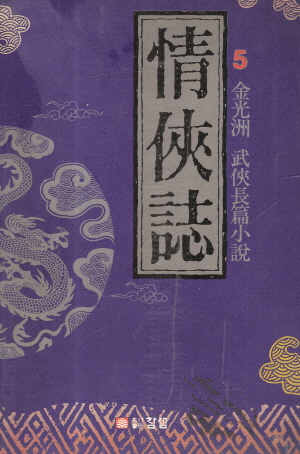 情俠誌
5
金光洲 武俠長篇小說